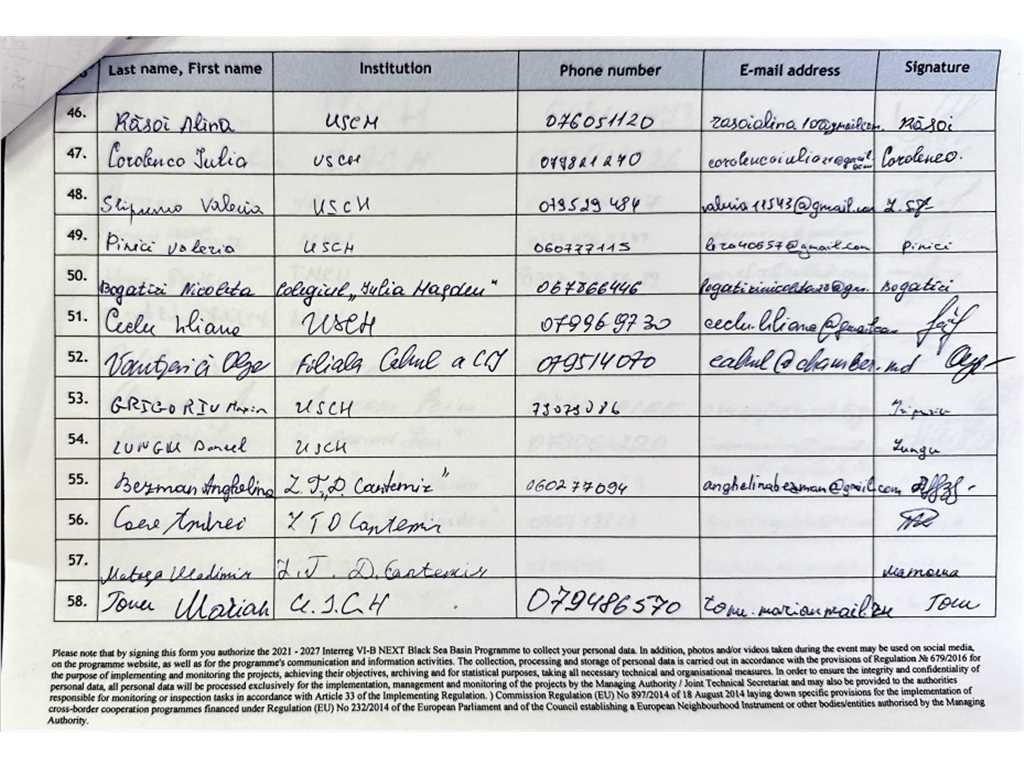 Last name, First name Institution Phone number E-mail address Signature
46. Răsoi Alina USCH 076051120 rasoialina10@gmail.com Răsoi
47. Corolenco Iulia USCH 079821270 Corolenco.
48. Valeria USCH 079529484 valeria11543@gmail.com
49. Pinici Valeria USCH 060777115 Pinici
50. Bogatici Nicoleta Colegiul „Iulia Hașdeu" 067866446 Bogatici
51. Ceclu Liliana USCH 079969730 ceclu.liliana@gmail.com
52. Olga Filiala Cahul a CCI 079514070 cahul@chamber.md
53. GRIGORIU Maxim USCH 73073086
54. LUNGU Daniel USCH Lungu
55. Bezman Anghelina L.T. „D. Cantemir" 060277094 anghelinabezman@gmail.com
56. Andrei L T D Cantemir
57. Vladimir L.T. D. Cantemir
58. Tomu Marian U.S.C.H 079486570 Tomu
Please note that by signing this form you authorize the 2021 - 2027 Interreg VI-B NEXT Black Sea Basin Programme to collect your personal data. In addition, photos and/or videos taken during the event may be used on social media,
on the programme website, as well as for the programme's communication and information activities. The collection, processing and storage of personal data is carried out in accordance with the provisions of Regulation № 679/2016 for
the purpose of implementing and monitoring the projects, achieving their objectives, archiving and for statistical purposes, taking all necessary technical and organisational measures. In order to ensure the integrity and confidentiality of
personal data, all personal data will be processed exclusively for the implementation, management and monitoring of the projects by the Managing Authority / Joint Technical Secretariat and may also be provided to the authorities
responsible for monitoring or inspection tasks in accordance with Article 33 of the Implementing Regulation. ) Commission Regulation (EU) No 897/2014 of 18 August 2014 laying down specific provisions for the implementation of
cross-border cooperation programmes financed under Regulation (EU) No 232/2014 of the European Parliament and of the Council establishing a European Neighbourhood Instrument or other bodies/entities authorised by the Managing
Authority.